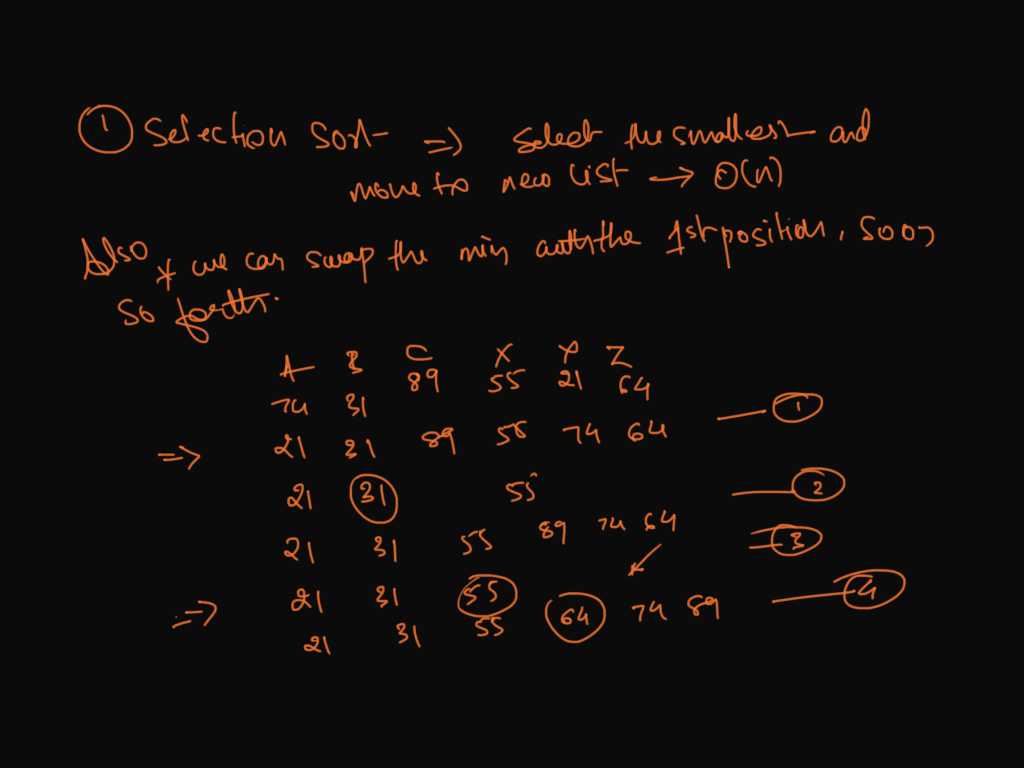 ① Selection Sort => Select the smallest and
move to new list → O(n)
Also * we can swap the min with the 1st position, so on
so forth.
A B C X Y Z
74 31 89 55 21 64
=> 21 31 89 55 74 64 — ①
21 31 55 — ②
21 31 55 89 74 64 — ③
=> 21 31 55 64 74 89 — ④
21 31 55